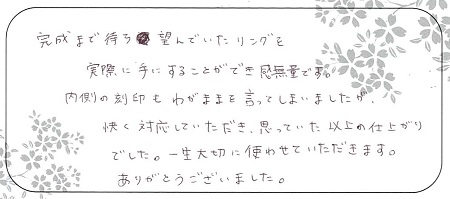 完成まで待ち望んでいたリングを
実際に手にすることができ感無量です。
内側の刻印もわがままを言ってしまいましたが、
快く対応していただき、思っていた以上の仕上がり
でした。一生大切に使わせていただきます。
ありがとうございました。